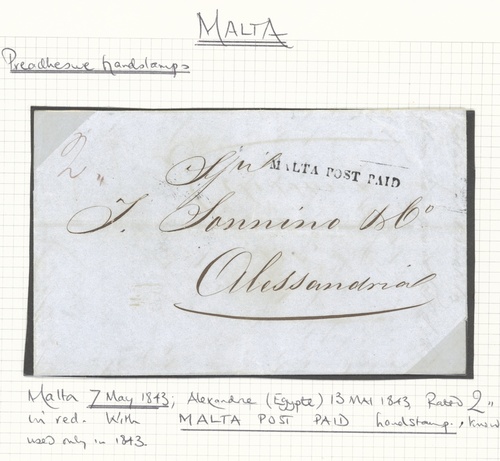 MALTA
Preadhesive handstamps
2"
MALTA POST PAID
J. Sonnino & Co
Alessandria
Malta 7 May 1843; Alexandrie (Egypte) 13 MAI 1843 Rated 2"
in red. With MALTA POST PAID handstamp, know
used only in 1843.